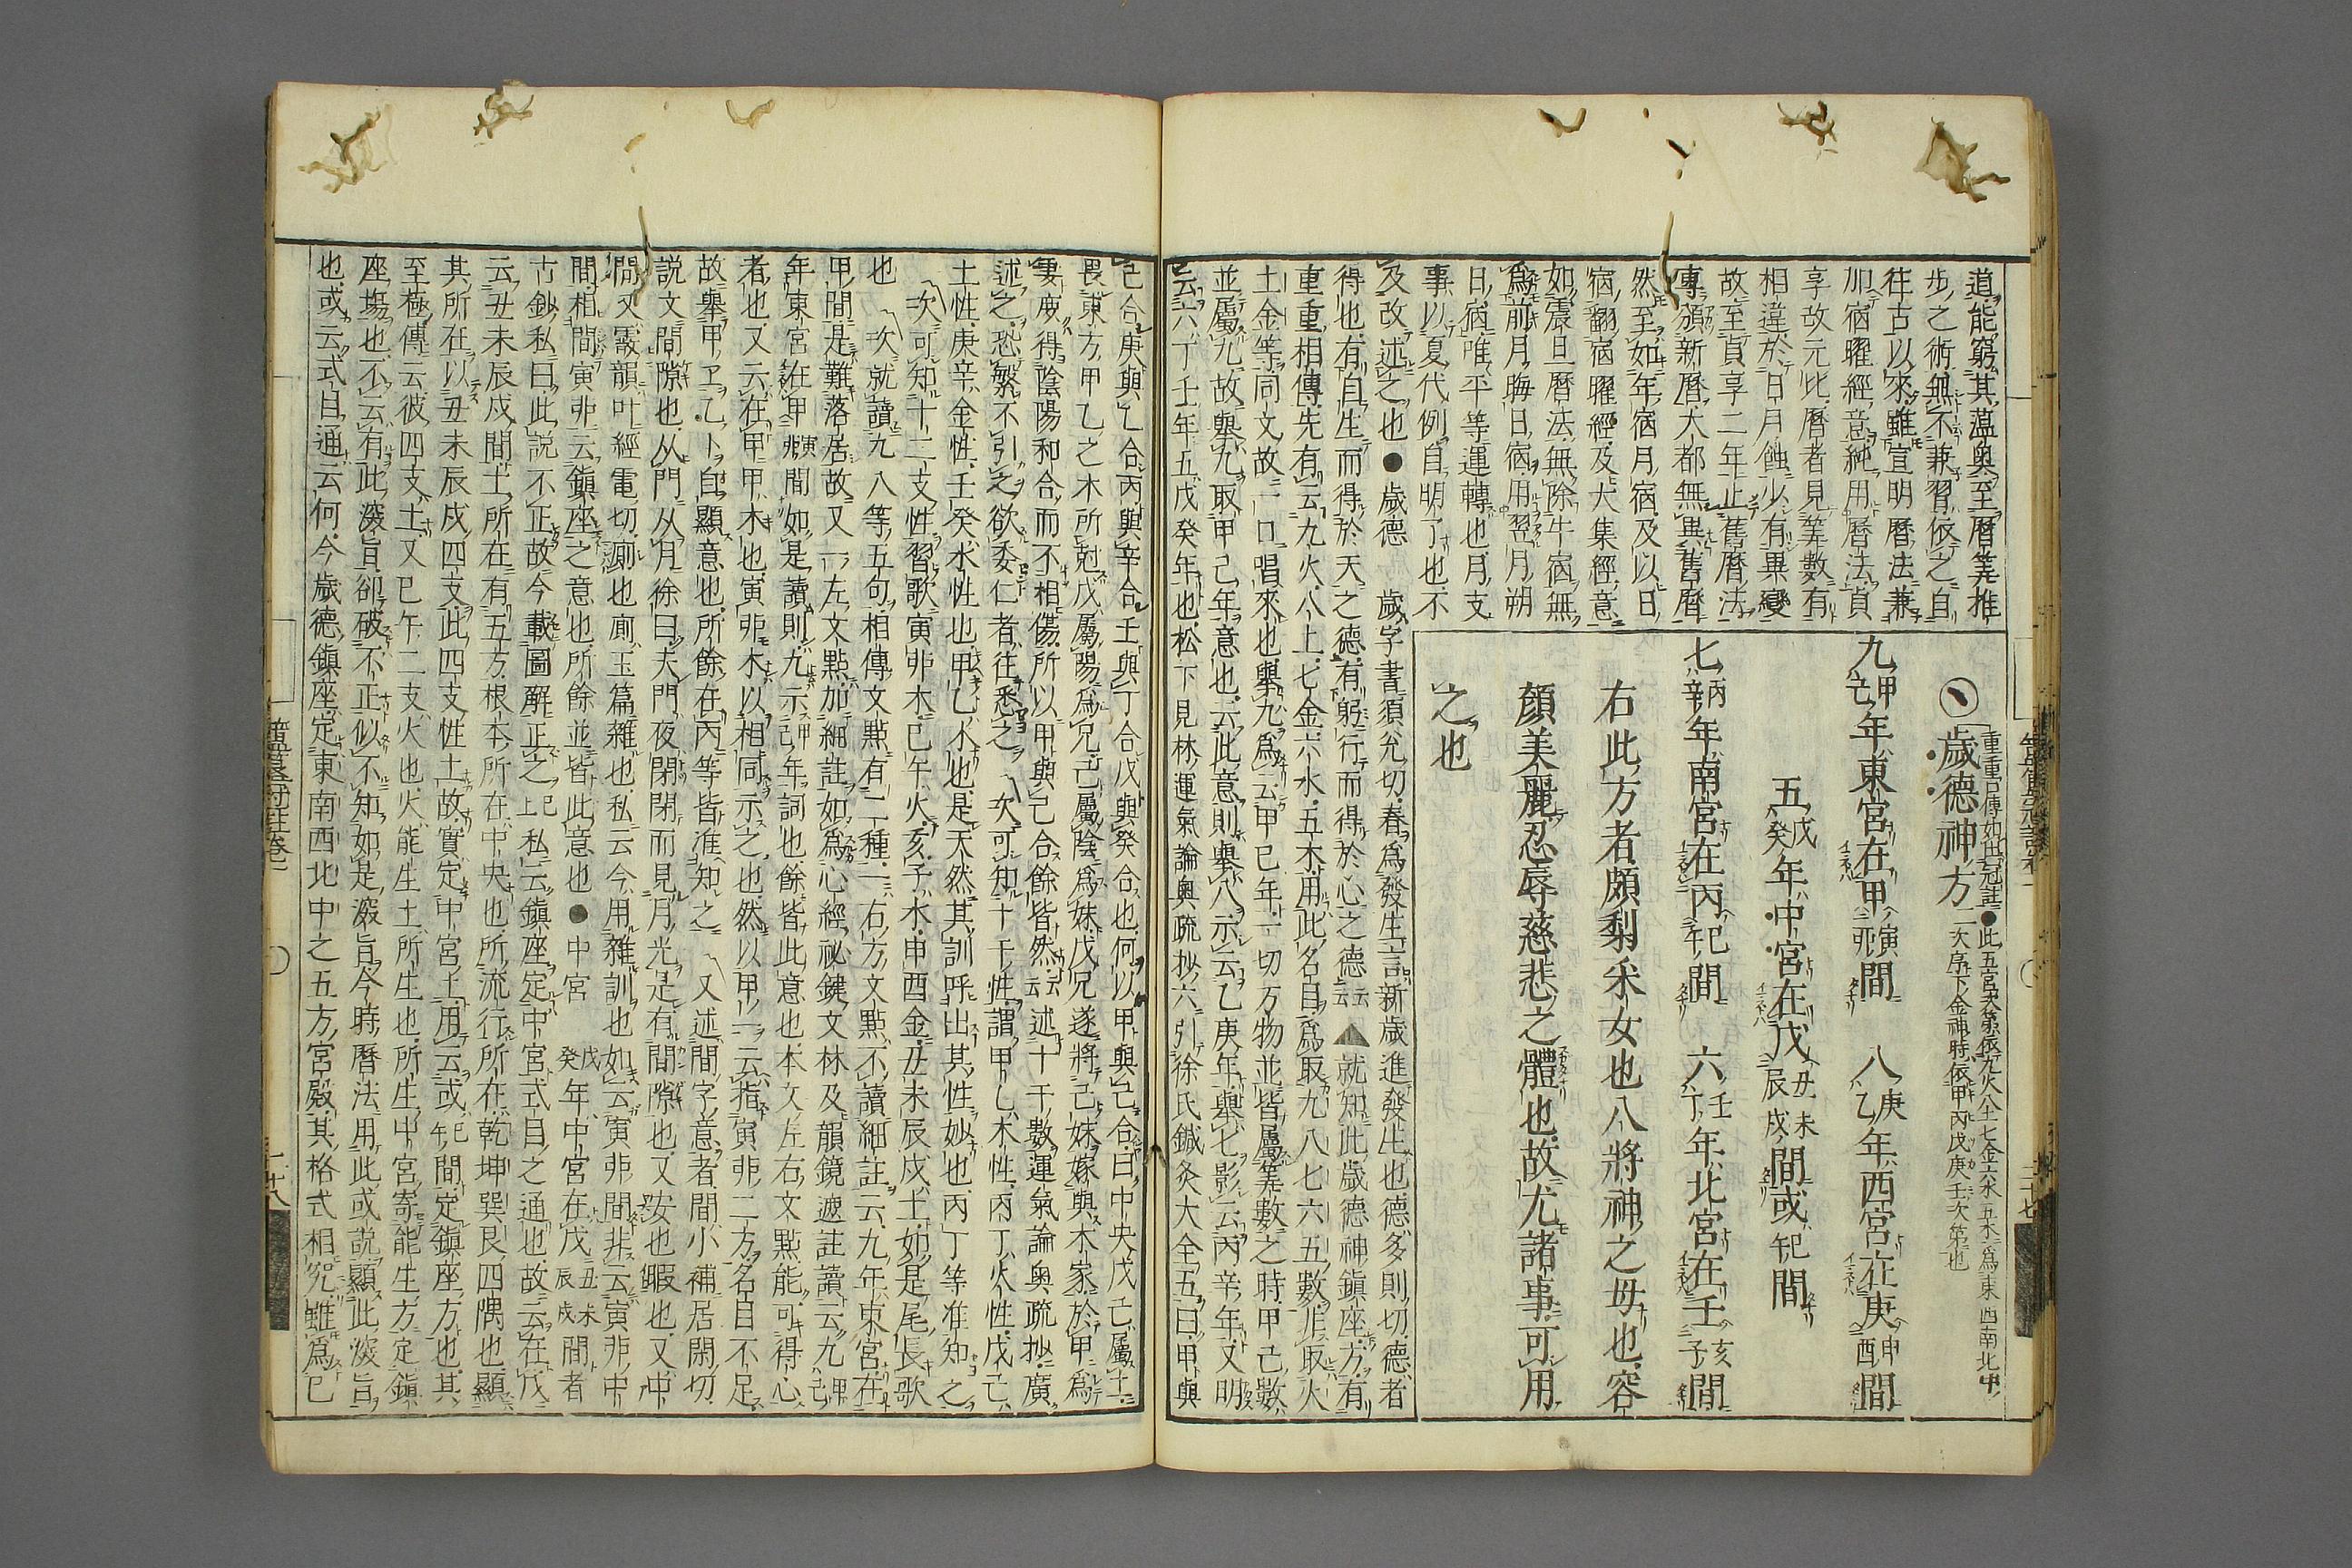 道能窮其薀奥至曆筭推
步之術無不兼習依之自
往古以來雖宣明曆法兼
加宿曜經意純用曆法貞
享故元此曆者見等數有
相違於日月蝕少有畢變
故至貞享二年止舊曆法
專頒新曆大都無異舊曆
然至如年宿月宿及以日
宿翻宿曜經及大集經意
如震旦曆法無除牛宿無
爲前月晦日宿用翌月朔
日宿唯平等運轉也月支
事以夏代例自明了也不
及改述之也●歳德 歳字書須允切春爲發生言新歳進發生也德多則切德者
歳德神方
此五宮次第依九火八土七金六水五木爲東西南北中
次序下金神時依甲丙戊庚壬次第也
九甲己年東宮在甲寅卯間 八庚乙年西宮在庚申酉間
五戊癸年中宮在戊丑未辰戌間或巳午間
七丙辛年南宮在丙巳午間 六壬丁年北宮在壬亥子間
右此方者頗梨采女也八將神之母也容
顏美麗忍辱慈悲之體也故尤諸事可用
之也
得也有自生而得於天之德有躬行而得於心之德云云▲就知此歳德神鎮座方有
重重相傳先有云九火八土七金六水五木用此名目爲取九八七六五數非取火
土金等同文故一口唱來也擧九爲云甲己年一切万物並皆屬等數之時甲己數
並屬九故擧九取甲己年意也云此意則擧八示云乙庚年擧七影云丙辛年又明
云六丁壬年五戊癸年也松下見林運氣論奥疏抄六引徐氏鍼灸大全五曰甲與
己合庚與乙合丙與辛合壬與丁合戊與癸合也何以甲與己合曰中央戊己屬土
畏東方甲乙之木所尅戊屬陽爲兄己屬陰爲妹戊兄遂將己妹嫁與木家於甲爲
妻庻得陰陽和合而不相傷所以甲與己合餘皆然云云述十干數運氣論奥疏抄廣
述之恐繁不引之欲委仁者往悉之 次可知十干性謂甲乙木性丙丁火性戊己
土性庚辛金性壬癸水性也甲乙木也是天然其訓呼出其性妙也丙丁等准知之
次可知十二支性習歌寅卯木巳午火亥子水申酉金丑未辰戌土如是尾長歌
也 次就讀九八等五句相傳文點有二種一右方文點不讀細註云九年東宮在
甲間是難落居故又一左文點加細註如爲心經祕鍵文林及韻鏡遮註讀云九甲己
年東宮在甲寅間如是讀則九示甲己年詞也餘皆此意也本文左右文點能可得心
者也又云在甲甲木也寅卯木以相同示之也然以甲一云指寅卯二方名目不足
故擧甲ヱ乙ト自顯意也所餘在丙等皆准知之 又述間字意者間小補居閑切
説文間隙也从門从月徐曰夫門夜閉閉而見月光是有間隙也又安也暇也又中
間又霰韻叶經電切廁也廁玉篇雜也私云今用雜訓也如云寅卯間非云寅卯中
間相間寅卯云鎮座之意也所餘並皆此意也●中宮 戊癸年中宮在戊丑未辰戌間者
古鈔私曰此説不正故今載圖解正之已上私云鎮座定中宮式目之通也故云在戊
云丑未辰戌間土所在有五方根本所在中央也所流行所在乾坤巽艮四隅也顯
其所在以丑未辰戌四支此四支性土故實定中宮土用云或巳午間定鎮座方也其
至極傳云彼四支土又巳午二支火也火能生土所生也所生中宮寄能生方定鎮
座塲也不云有此深旨卻破不正似不知如是深旨今時曆法用此或説顯此深旨
也或云式目通云何今歳德鎮座定東南西北中之五方宮殿其格式相究雖爲已